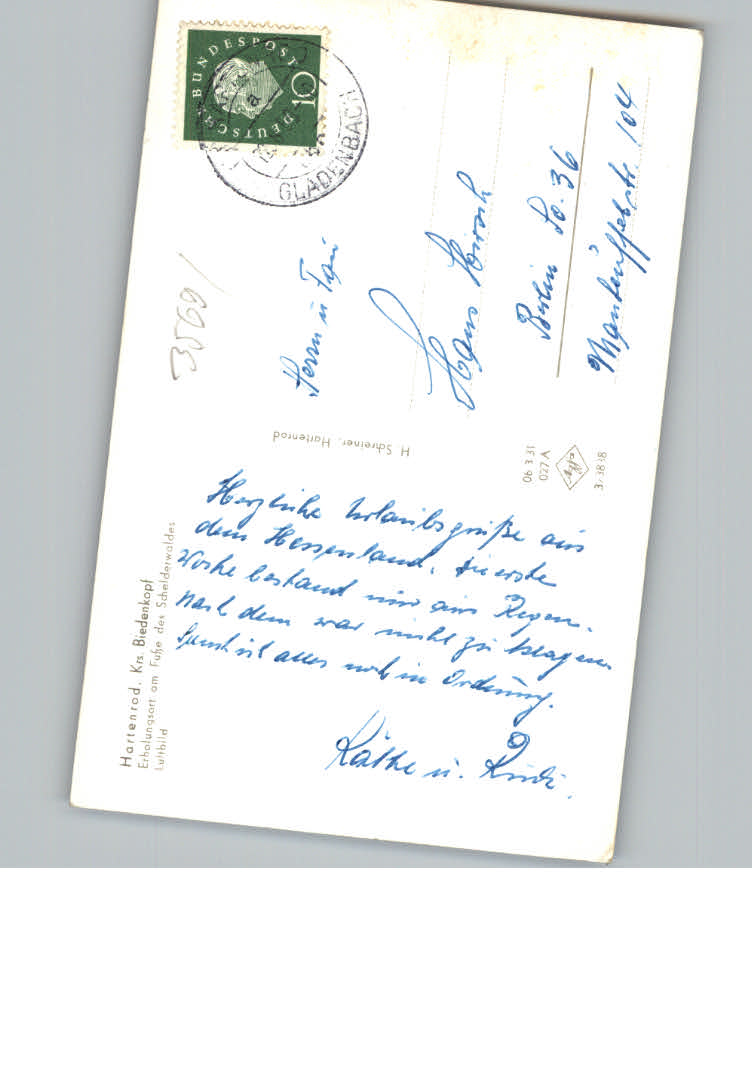 Hartenrod, Krs. Biedenkopf
Erholungsort am Fuße des Schelderwaldes
Luftbild
Herzliche Urlaubsgrüße aus
dem Hessenland. Die erste
Woche bestand nur aus Regen.
Nach dem war nicht zu klagen.
Sonst ist alles noch in Ordnung.
Käthe u. Rudi.
H. Schreiner, Hartenrod
06 3 31
027 A
3/3838
3569/
DEUTSCHE BUNDESPOST
10
a
GLADENBACH
Herrn u Frau
Hans
Berlin So. 36
Manteuffelstr. 104